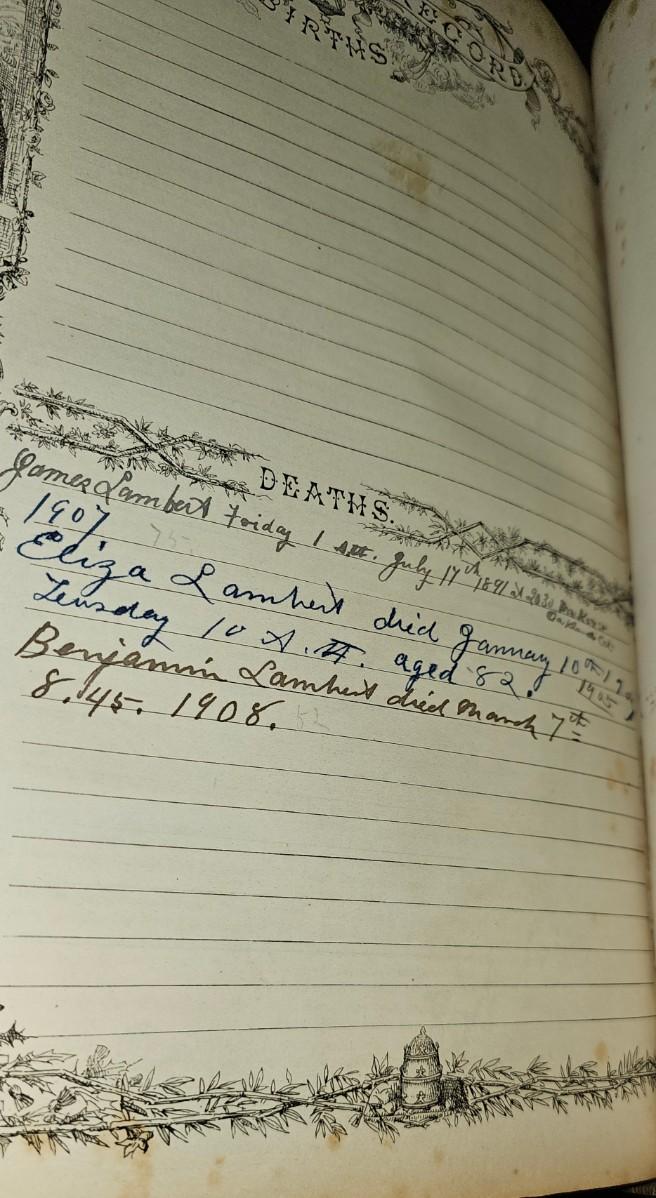 RECORD
BIRTHS.
DEATHS.
James Lambert Friday 1 A.M. July 17th 1891 at
1907 75.
Eliza Lambert died Jannay 10th
Teusday 10 A.M. aged 82. 1905
Benjamin Lambert died March 7th
8.45. 1908. 52